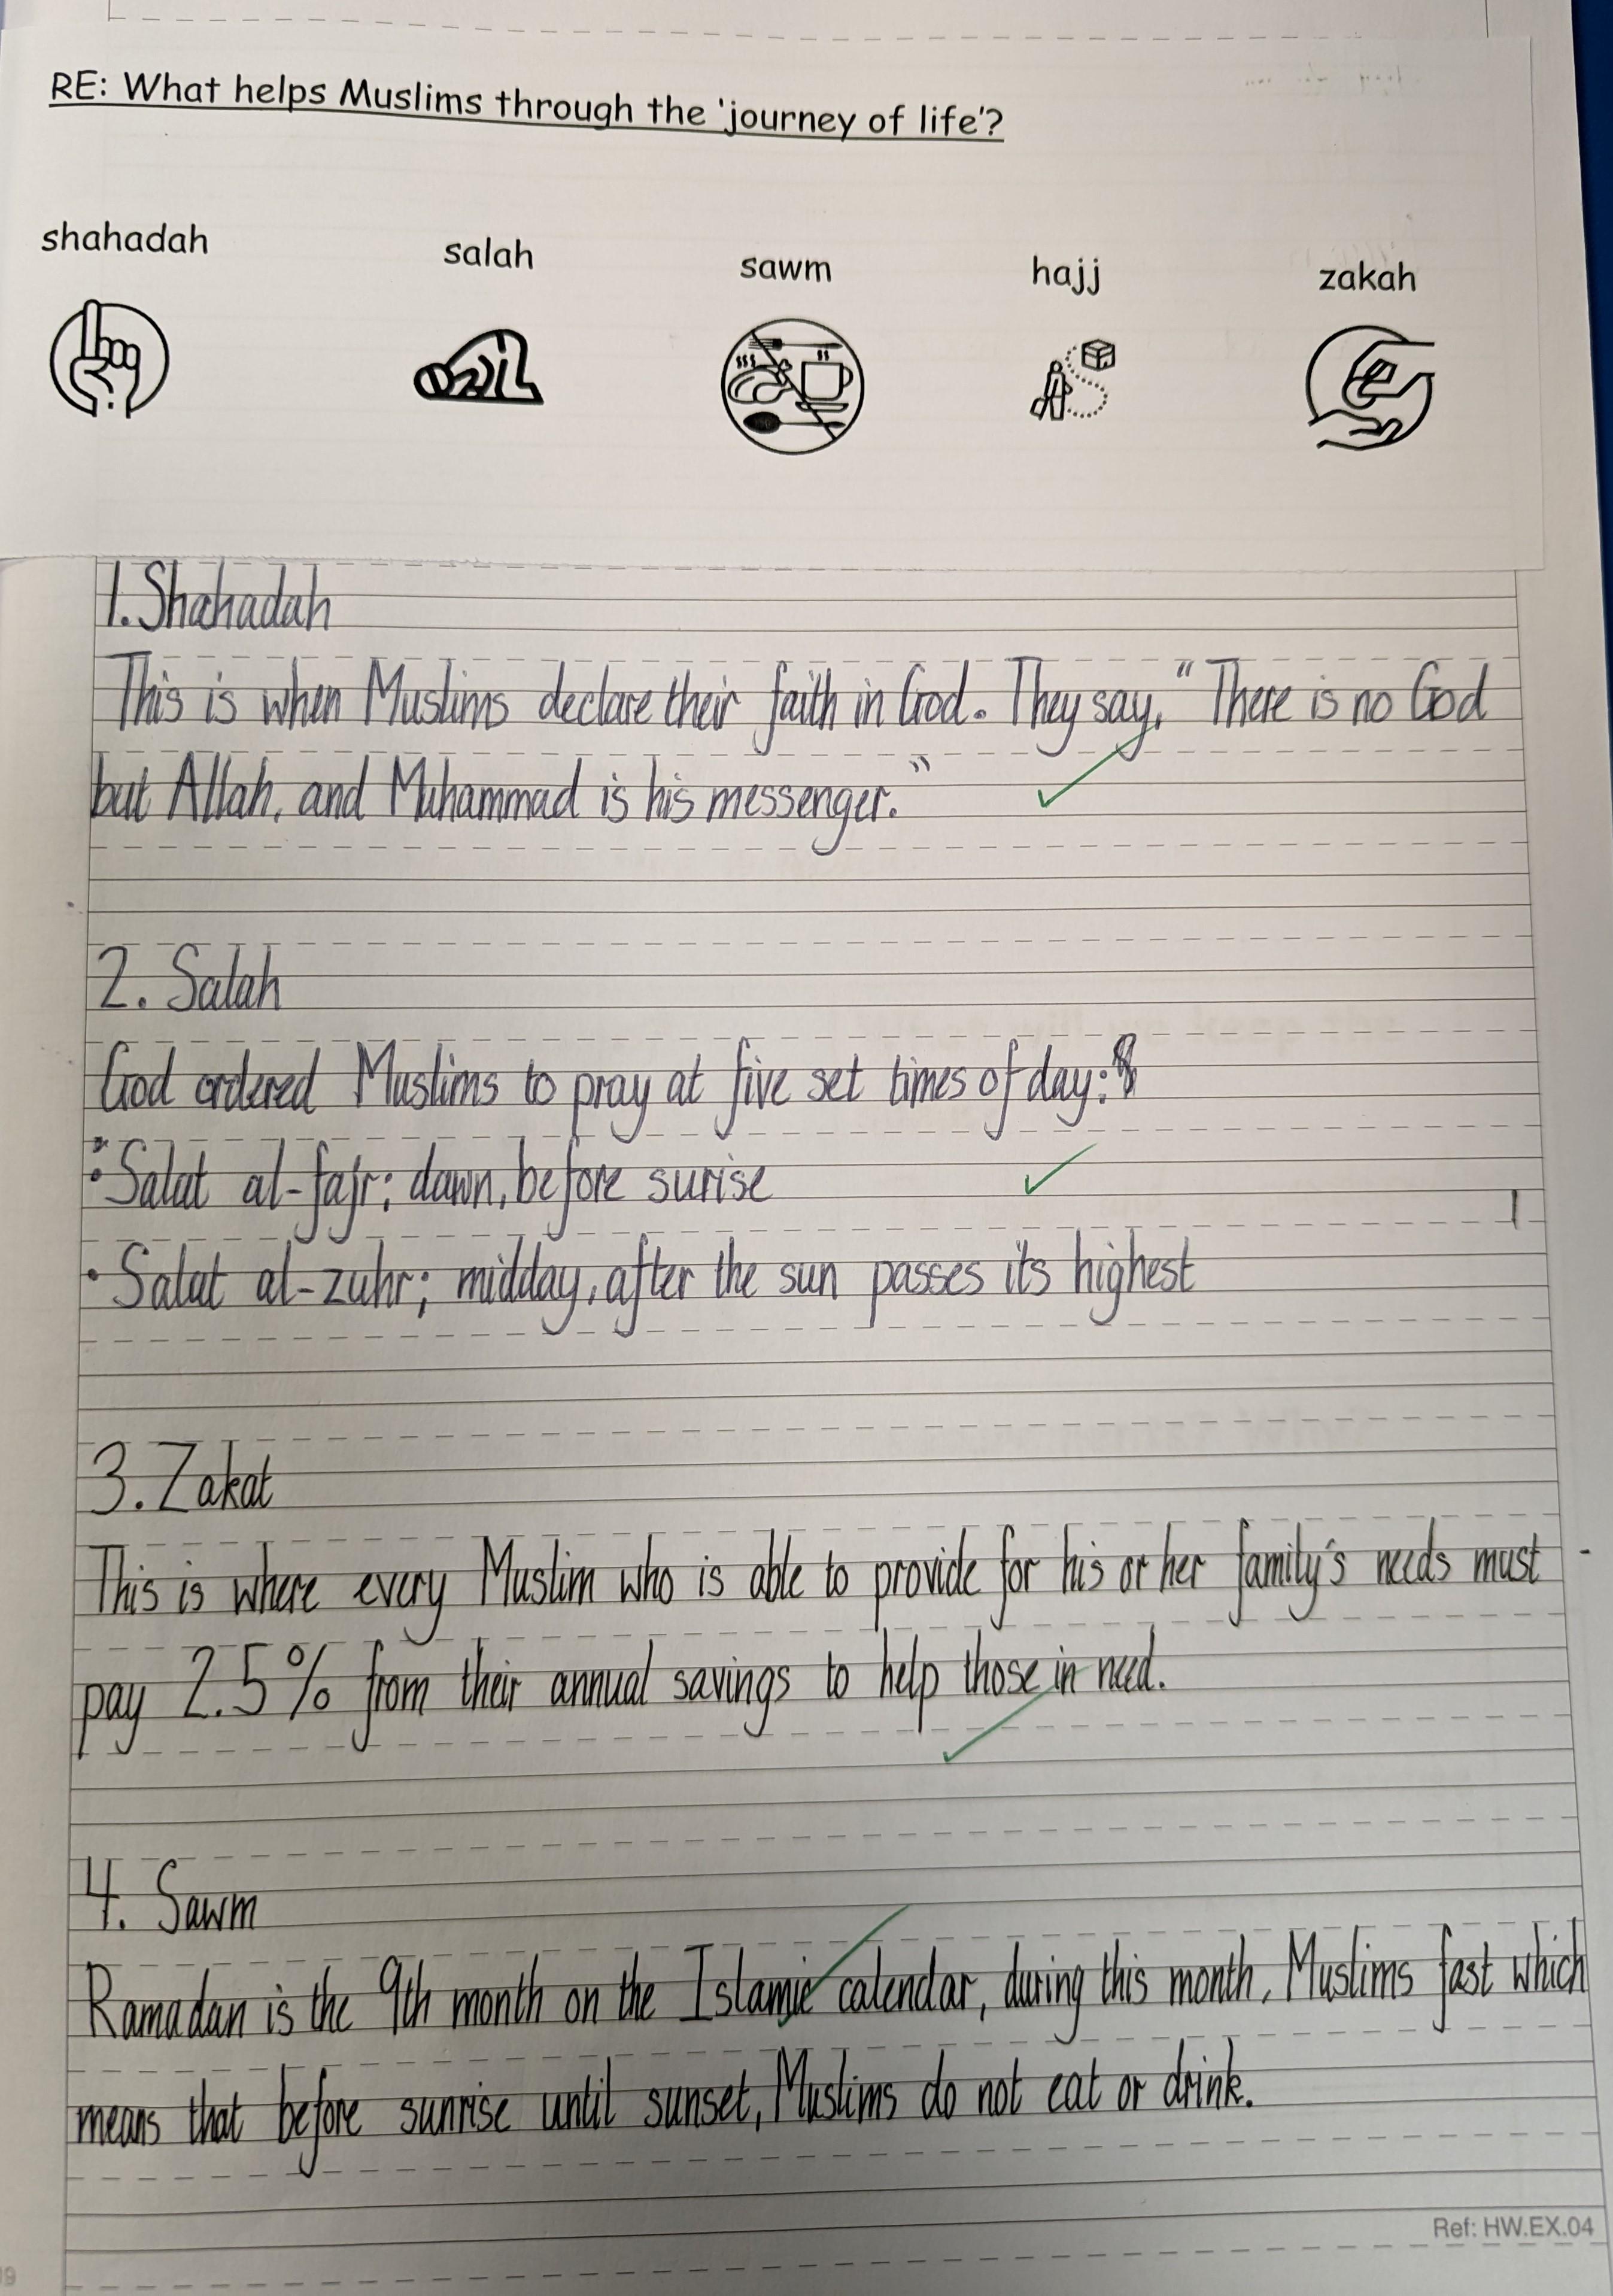 RE: What helps Muslims through the 'journey of life'?
shahadah salah sawm hajj zakah
1. Shahadah
This is when Muslims declare their faith in God. They say, "There is no God
but Allah, and Muhammad is his messenger."
2. Salah
God ordered Muslims to pray at five set times of day:
• Salat al-fajr: dawn, before surise
• Salat al-zuhr; midday, after the sun passes its highest
3. Zakat
This is where every Muslim who is able to provide for his or her family's needs must
pay 2.5% from their annual savings to help those in need.
4. Sawm
Ramadan is the 9th month on the Islamic calendar, during this month, Muslims fast which
means that before sunrise until sunset, Muslims do not eat or drink.
Ref: HW.EX.04